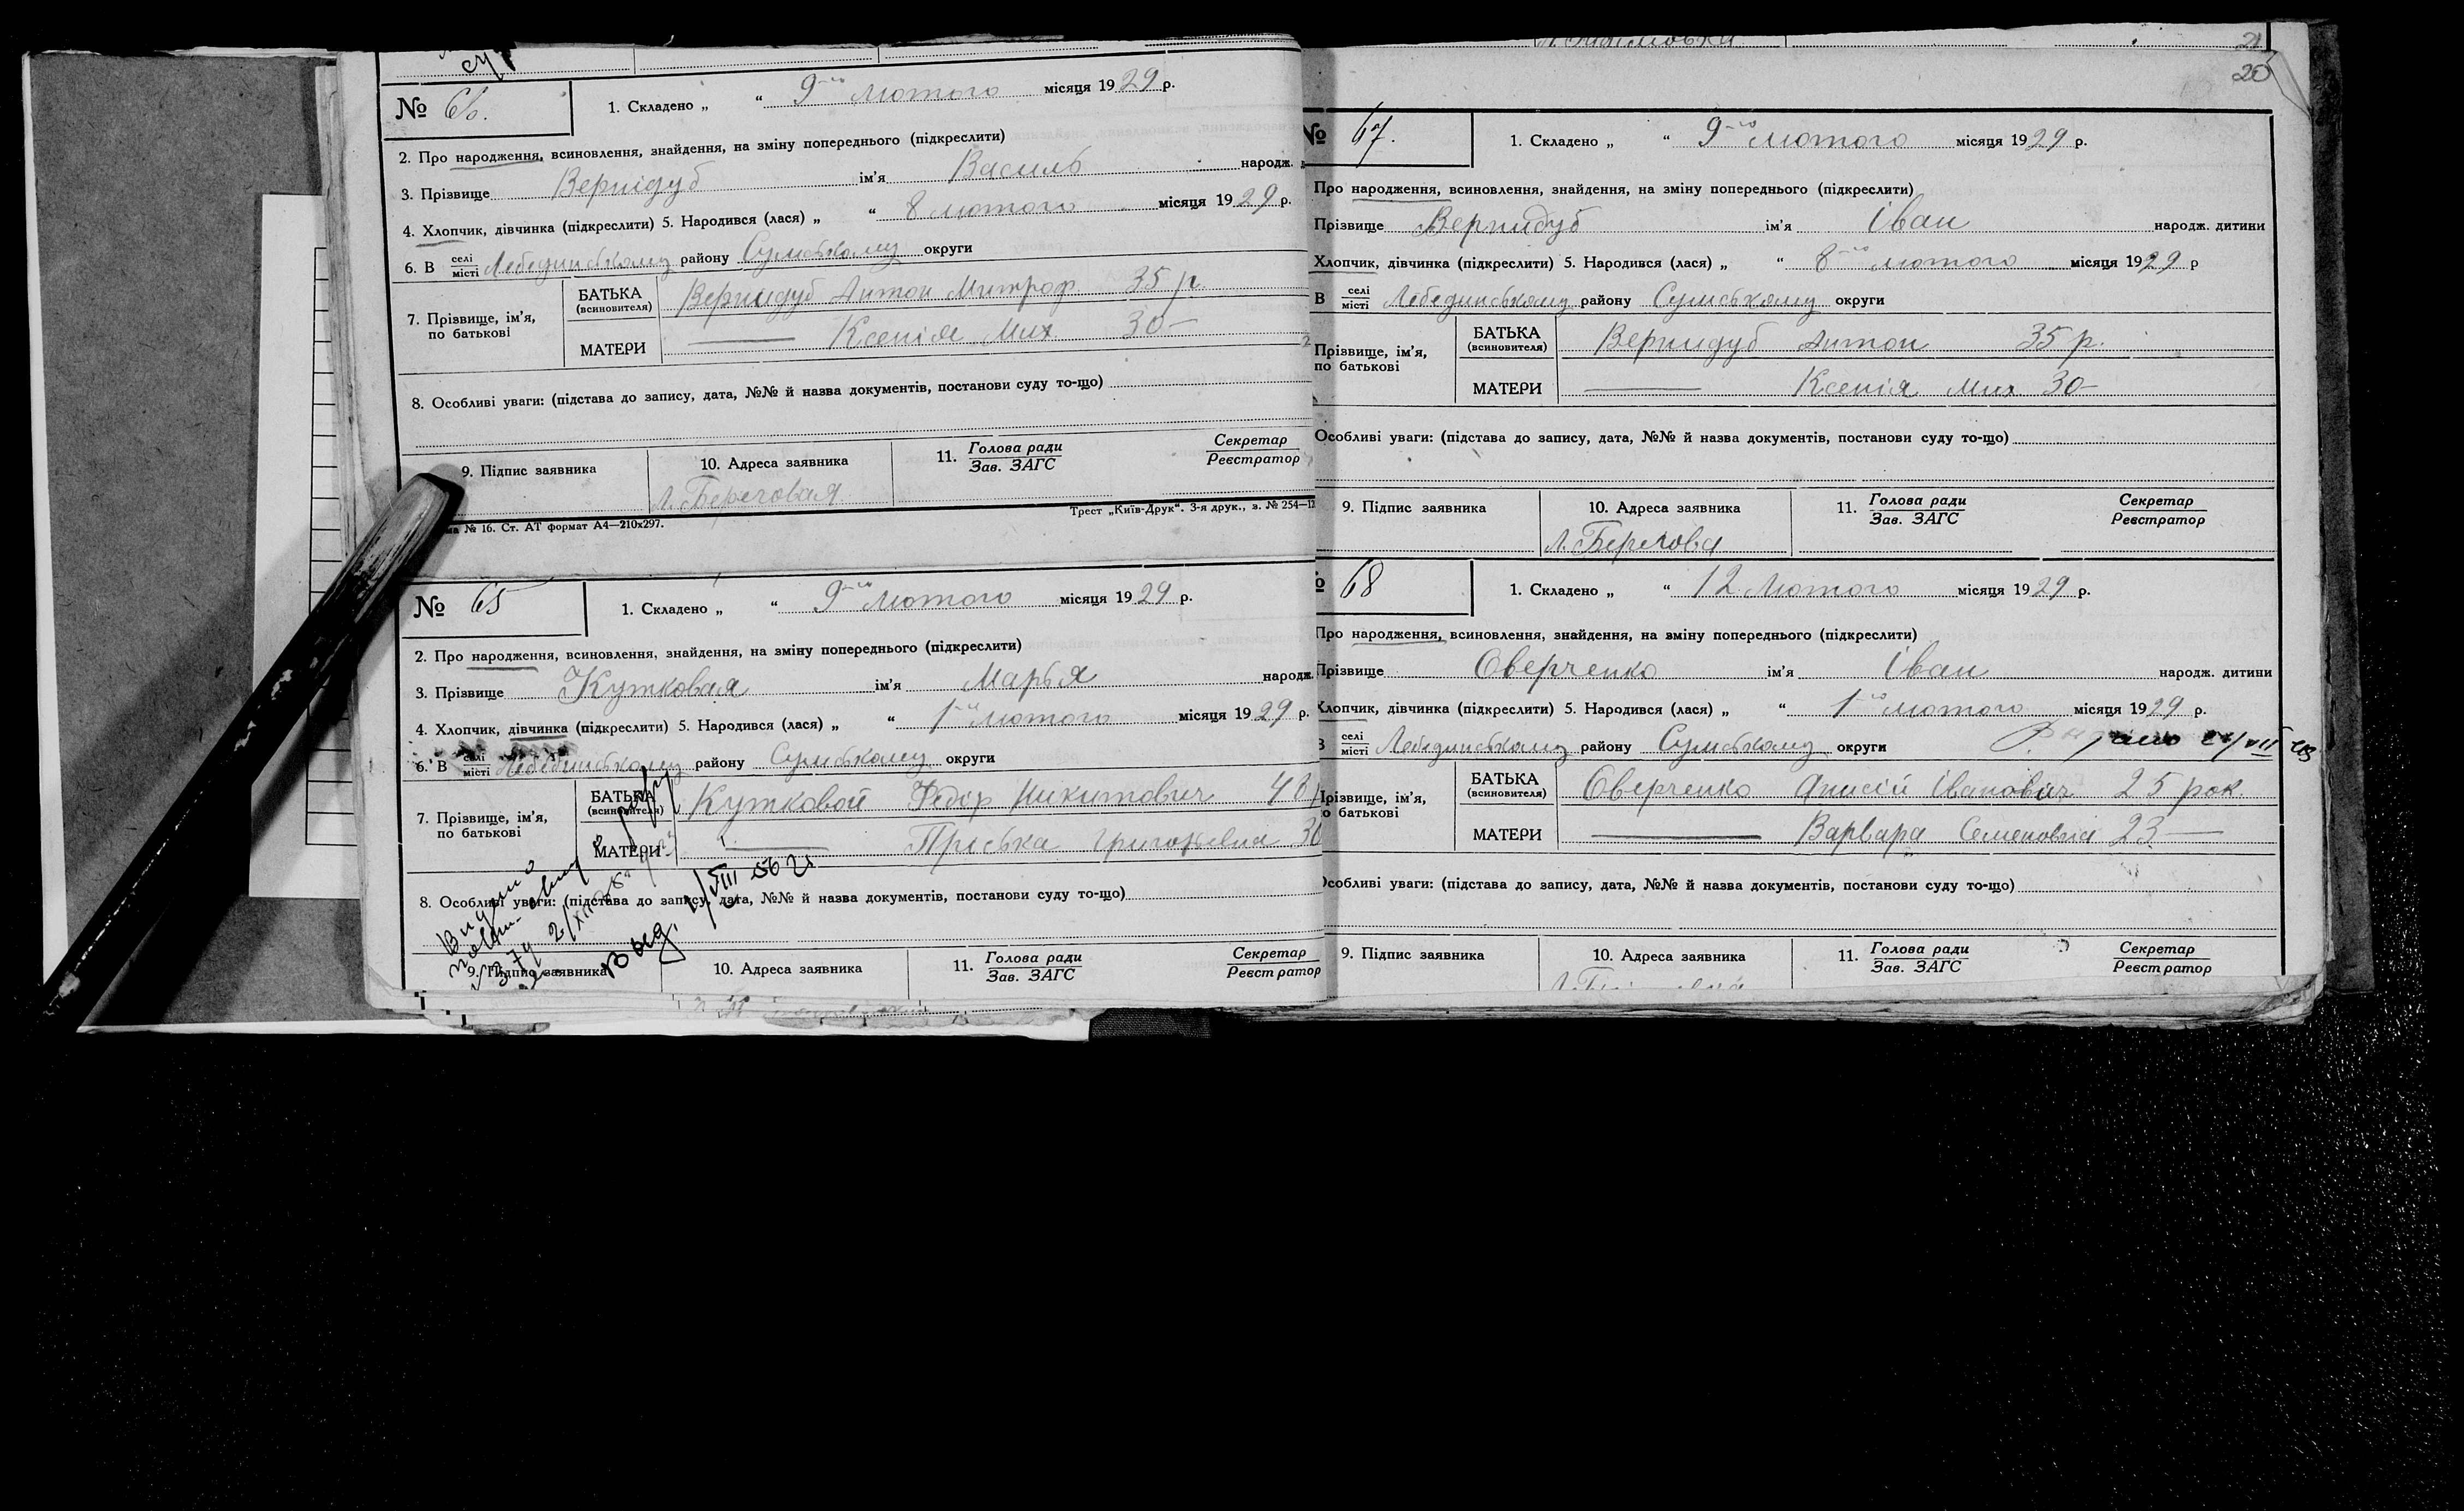 № 66. 1. Складено „ “ 9-го Лютого місяця 1929 р.
2. Про народження, всиновлення, знайдення, на зміну попереднього (підкреслити)
3. Прізвище Вернідуб ім'я Василь народж.
4. Хлопчик, дівчинка (підкреслити) 5. Народився (лася) „ “ 8 лютого місяця 1929 р.
6. В селі місті Лебединському району Сумському округи
7. Прізвище, ім'я, по батькові БАТЬКА (всиновителя) Вернидуб Антон Митроф. 35 р.
МАТЕРИ —— Ксенія Мих. 30 –
8. Особливі уваги: (підстава до запису, дата, №№ й назва документів, постанови суду то-що)
9. Підпис заявника 10. Адреса заявника 11. Голова ради Зав. ЗАГС Секретар Реєстратор
Л. Береговая
№ 16. Ст. АТ формат А4—210х297. Трест „Київ-Друк“. 3-я друк., з. № 254—12
№ 65 1. Складено „ “ 9-го Лютого місяця 1929 р.
2. Про народження, всиновлення, знайдення, на зміну попереднього (підкреслити)
3. Прізвище Кутковая ім'я Марья народж.
4. Хлопчик, дівчинка (підкреслити) 5. Народився (лася) „ “ 1-го лютого місяця 1929 р.
6. В селі місті Лебединському району Сумському округи
7. Прізвище, ім'я, по батькові БАТЬКА (всиновителя) Кутковой Федір Никитович
МАТЕРИ —— Пріська Григорьевна 30
8. Особливі уваги: (підстава до запису, дата, №№ й назва документів, постанови суду то-що)
Выд. 1/VIII 56 г.
9. Підпис заявника 10. Адреса заявника 11. Голова ради Зав. ЗАГС Секретар Реєстратор
21
20
№ 67. 1. Складено „ “ 9-го Лютого місяця 1929 р.
Про народження, всиновлення, знайдення, на зміну попереднього (підкреслити)
Прізвище Вернидуб ім'я Іван народж. дитини
Хлопчик, дівчинка (підкреслити) 5. Народився (лася) „ “ 8-го лютого місяця 1929 р
В селі місті Лебединському району Сумському округи
Прізвище, ім'я, по батькові БАТЬКА (всиновителя) Вернидуб Антон 35 р.
МАТЕРИ —— Ксенія Мих. 30 –
Особливі уваги: (підстава до запису, дата, №№ й назва документів, постанови суду то-що)
9. Підпис заявника 10. Адреса заявника 11. Голова ради Зав. ЗАГС Секретар Реєстратор
Л. Берегова
68 1. Складено „ “ 12 Лютого місяця 1929 р.
Про народження, всиновлення, знайдення, на зміну попереднього (підкреслити)
Прізвище Оверченко ім'я Іван народж. дитини
Хлопчик, дівчинка (підкреслити) 5. Народився (лася) „ “ 1-го лютого місяця 1929 р.
В селі місті Лебединському району Сумському округи
Прізвище, ім'я, по батькові БАТЬКА (всиновителя) Оверченко Анисій Іванович 25 рок.
МАТЕРИ —— Варвара Семеновна 23 —
Особливі уваги: (підстава до запису, дата, №№ й назва документів, постанови суду то-що)
9. Підпис заявника 10. Адреса заявника 11. Голова ради Зав. ЗАГС Секретар Реєстратор